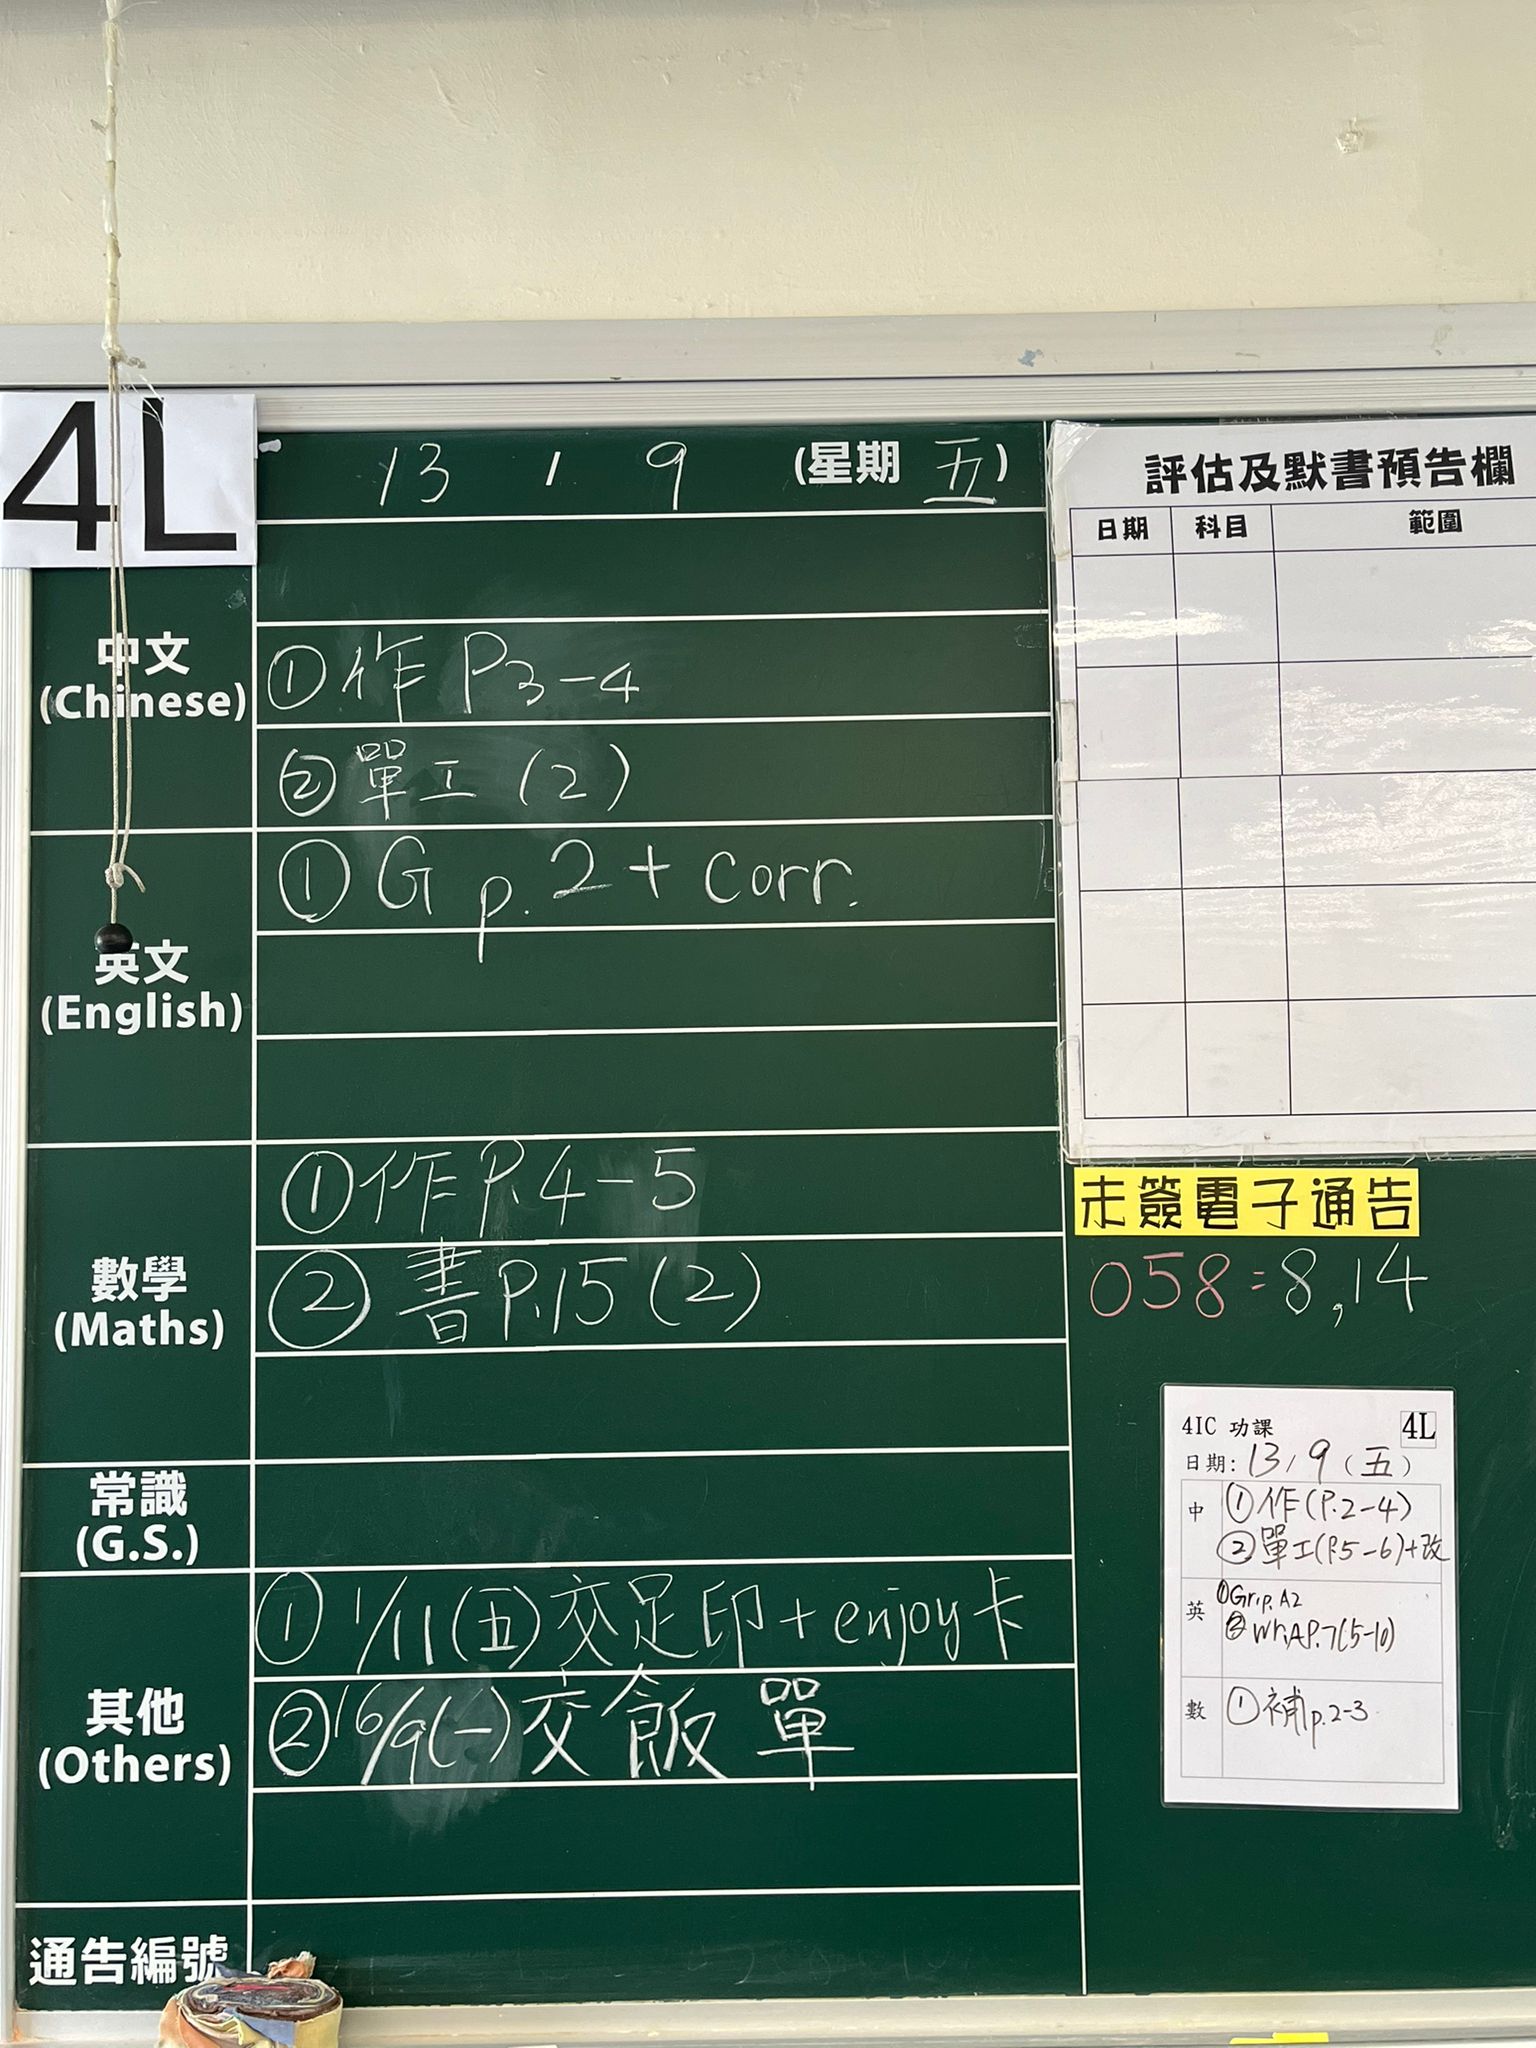 4L
13 / 9 (星期 五)
中文
(Chinese)
① 作 P3-4
② 單工 (2)
英文
(English)
① G p.2 + corr.
數學
(Maths)
① 作 P.4-5
② 書 P.15 (2)
常識
(G.S.)
其他
(Others)
① 1/11 (五) 交足印 + enjoy卡
② 16/9 (一) 交飯單
通告編號
評估及默書預告欄
日期 科目 範圍
未簽電子通告
058 = 8,14
4IC 功課 4L
日期: 13/9 (五)
中 ① 作 (P.2-4)
② 單工 (P.5-6)+改
英 ① Gr.p.A2
② Wr.A P.7 (5-10)
數 ① 補 p.2-3